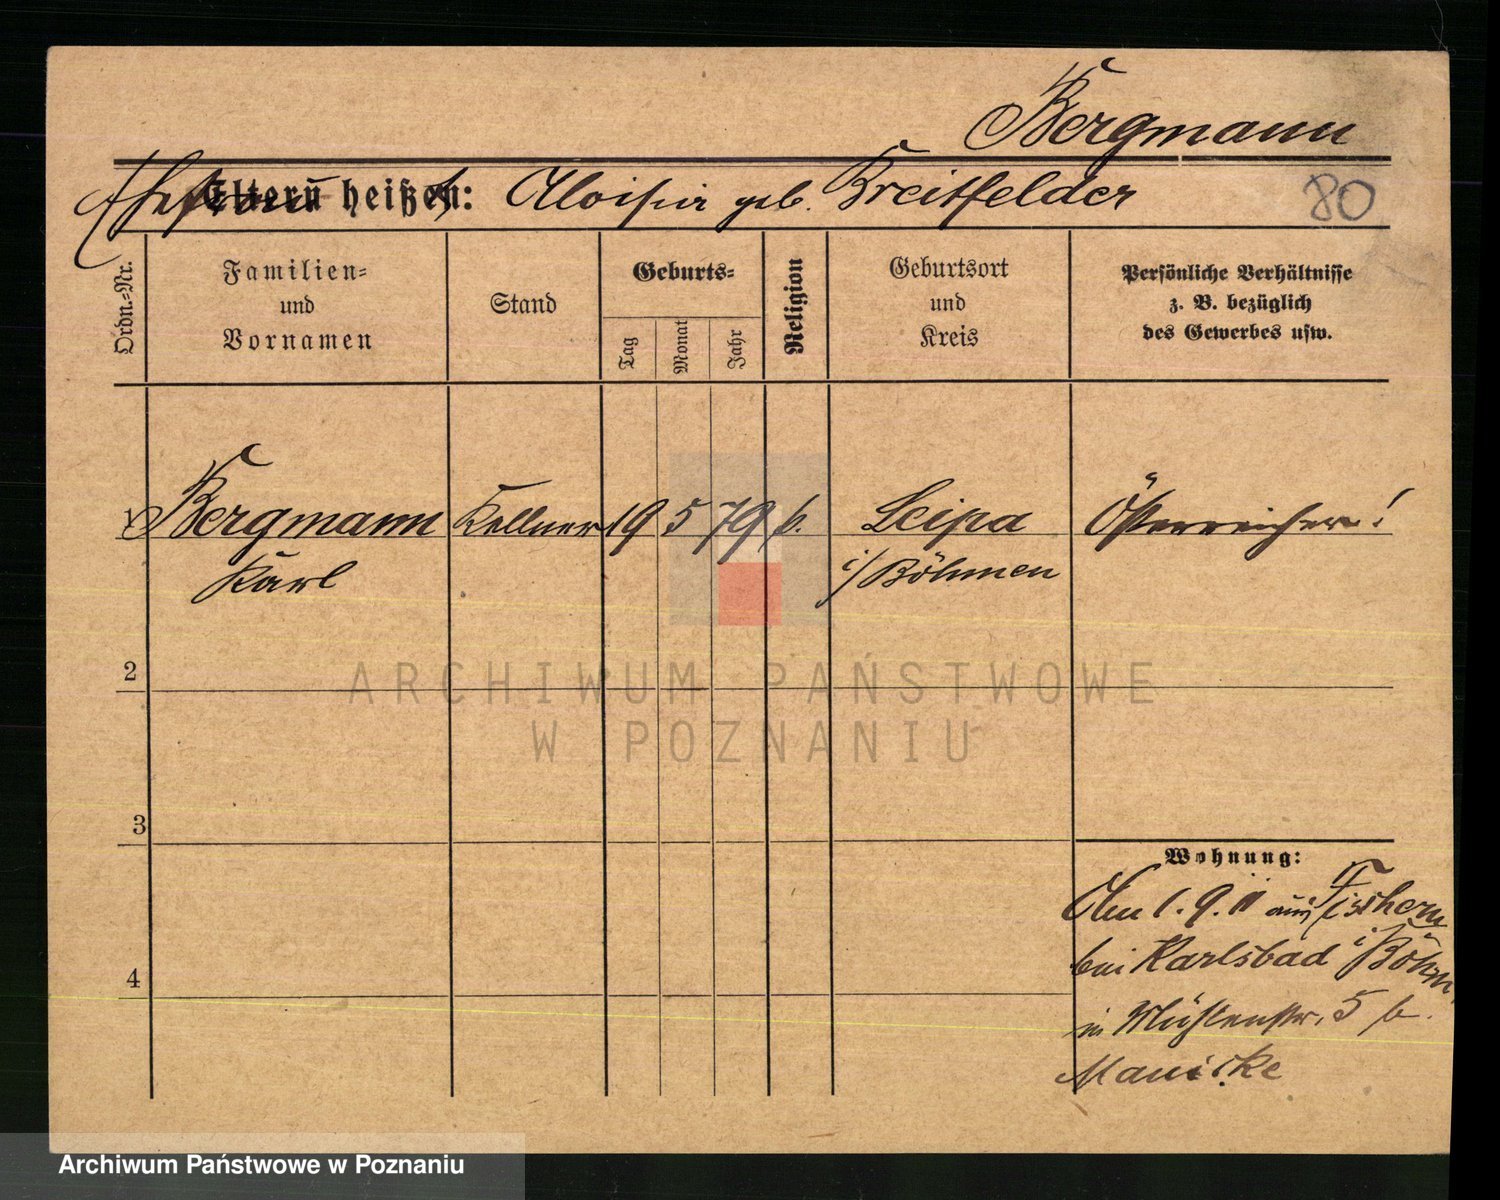 Bergmann
Eltern heißen: Aloisia geb. Breitfelder
80
Ordn.-Nr.
Familien-
und
Vornamen
Stand
Geburts-
Tag
Monat
Jahr
Religion
Geburtsort
und
Kreis
Persönliche Verhältnisse
z. B. bezüglich
des Gewerbes usw.
1 Bergmann Kellner 19 5 79 k. Leipa Österreicher!
Karl i/ Böhmen
2
3
Wohnung:
Am 1. 9. 11 aus Fischern
bei Karlsbad i/ Böhm
4
in 5 b.
ARCHIWUM PAŃSTWOWE
W POZNANIU
Archiwum Państwowe w Poznaniu